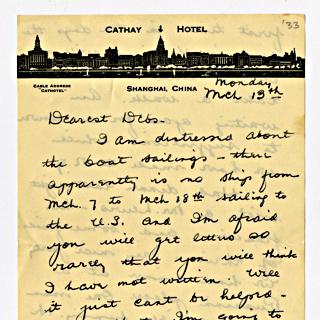 '33
CATHAY HOTEL
CABLE ADDRESS
"CATHOTEL"
SHANGHAI, CHINA
Monday
Mch 13th
Dearest Debs.
I am distressed about
the boat sailings – there
apparently is no ship from
Mch. 7 to Mch 18th sailing to
the U.S. and I'm afraid
you will get letters so
rarely that you will think
I have not written. Well
it just cant be helped -
I'm going to